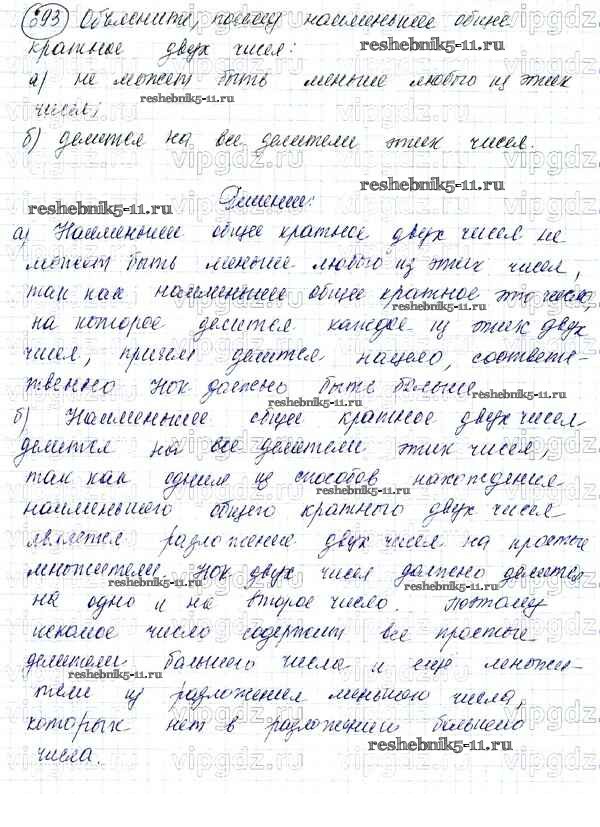 893 Объясните, почему наименьшее общее
кратное двух чисел:
а) не может быть меньше любого из этих
чисел;
б) делится на все делители этих чисел.
Решение:
а) Наименьшее общее кратное двух чисел не
может быть меньше любого из этих чисел,
так как наименьшее общее кратное это число,
на которое делится каждое из этих двух
чисел, причем делится нацело, соответс-
твенно НОК должно быть больше.
б) Наименьшее общее кратное двух чисел
делится на все делители этих чисел,
так как одним из способов нахождения
наименьшего общего кратного двух чисел
является разложение двух чисел на простые
множители. НОК двух чисел должно делится
на одно и на второе число. Поэтому
искомое число содержит все простые
делители большего числа и ещё множи-
тели из разложения меньшего числа,
которых нет в разложении большего
числа.
reshebnik5-11.ru
vipgdz.ru